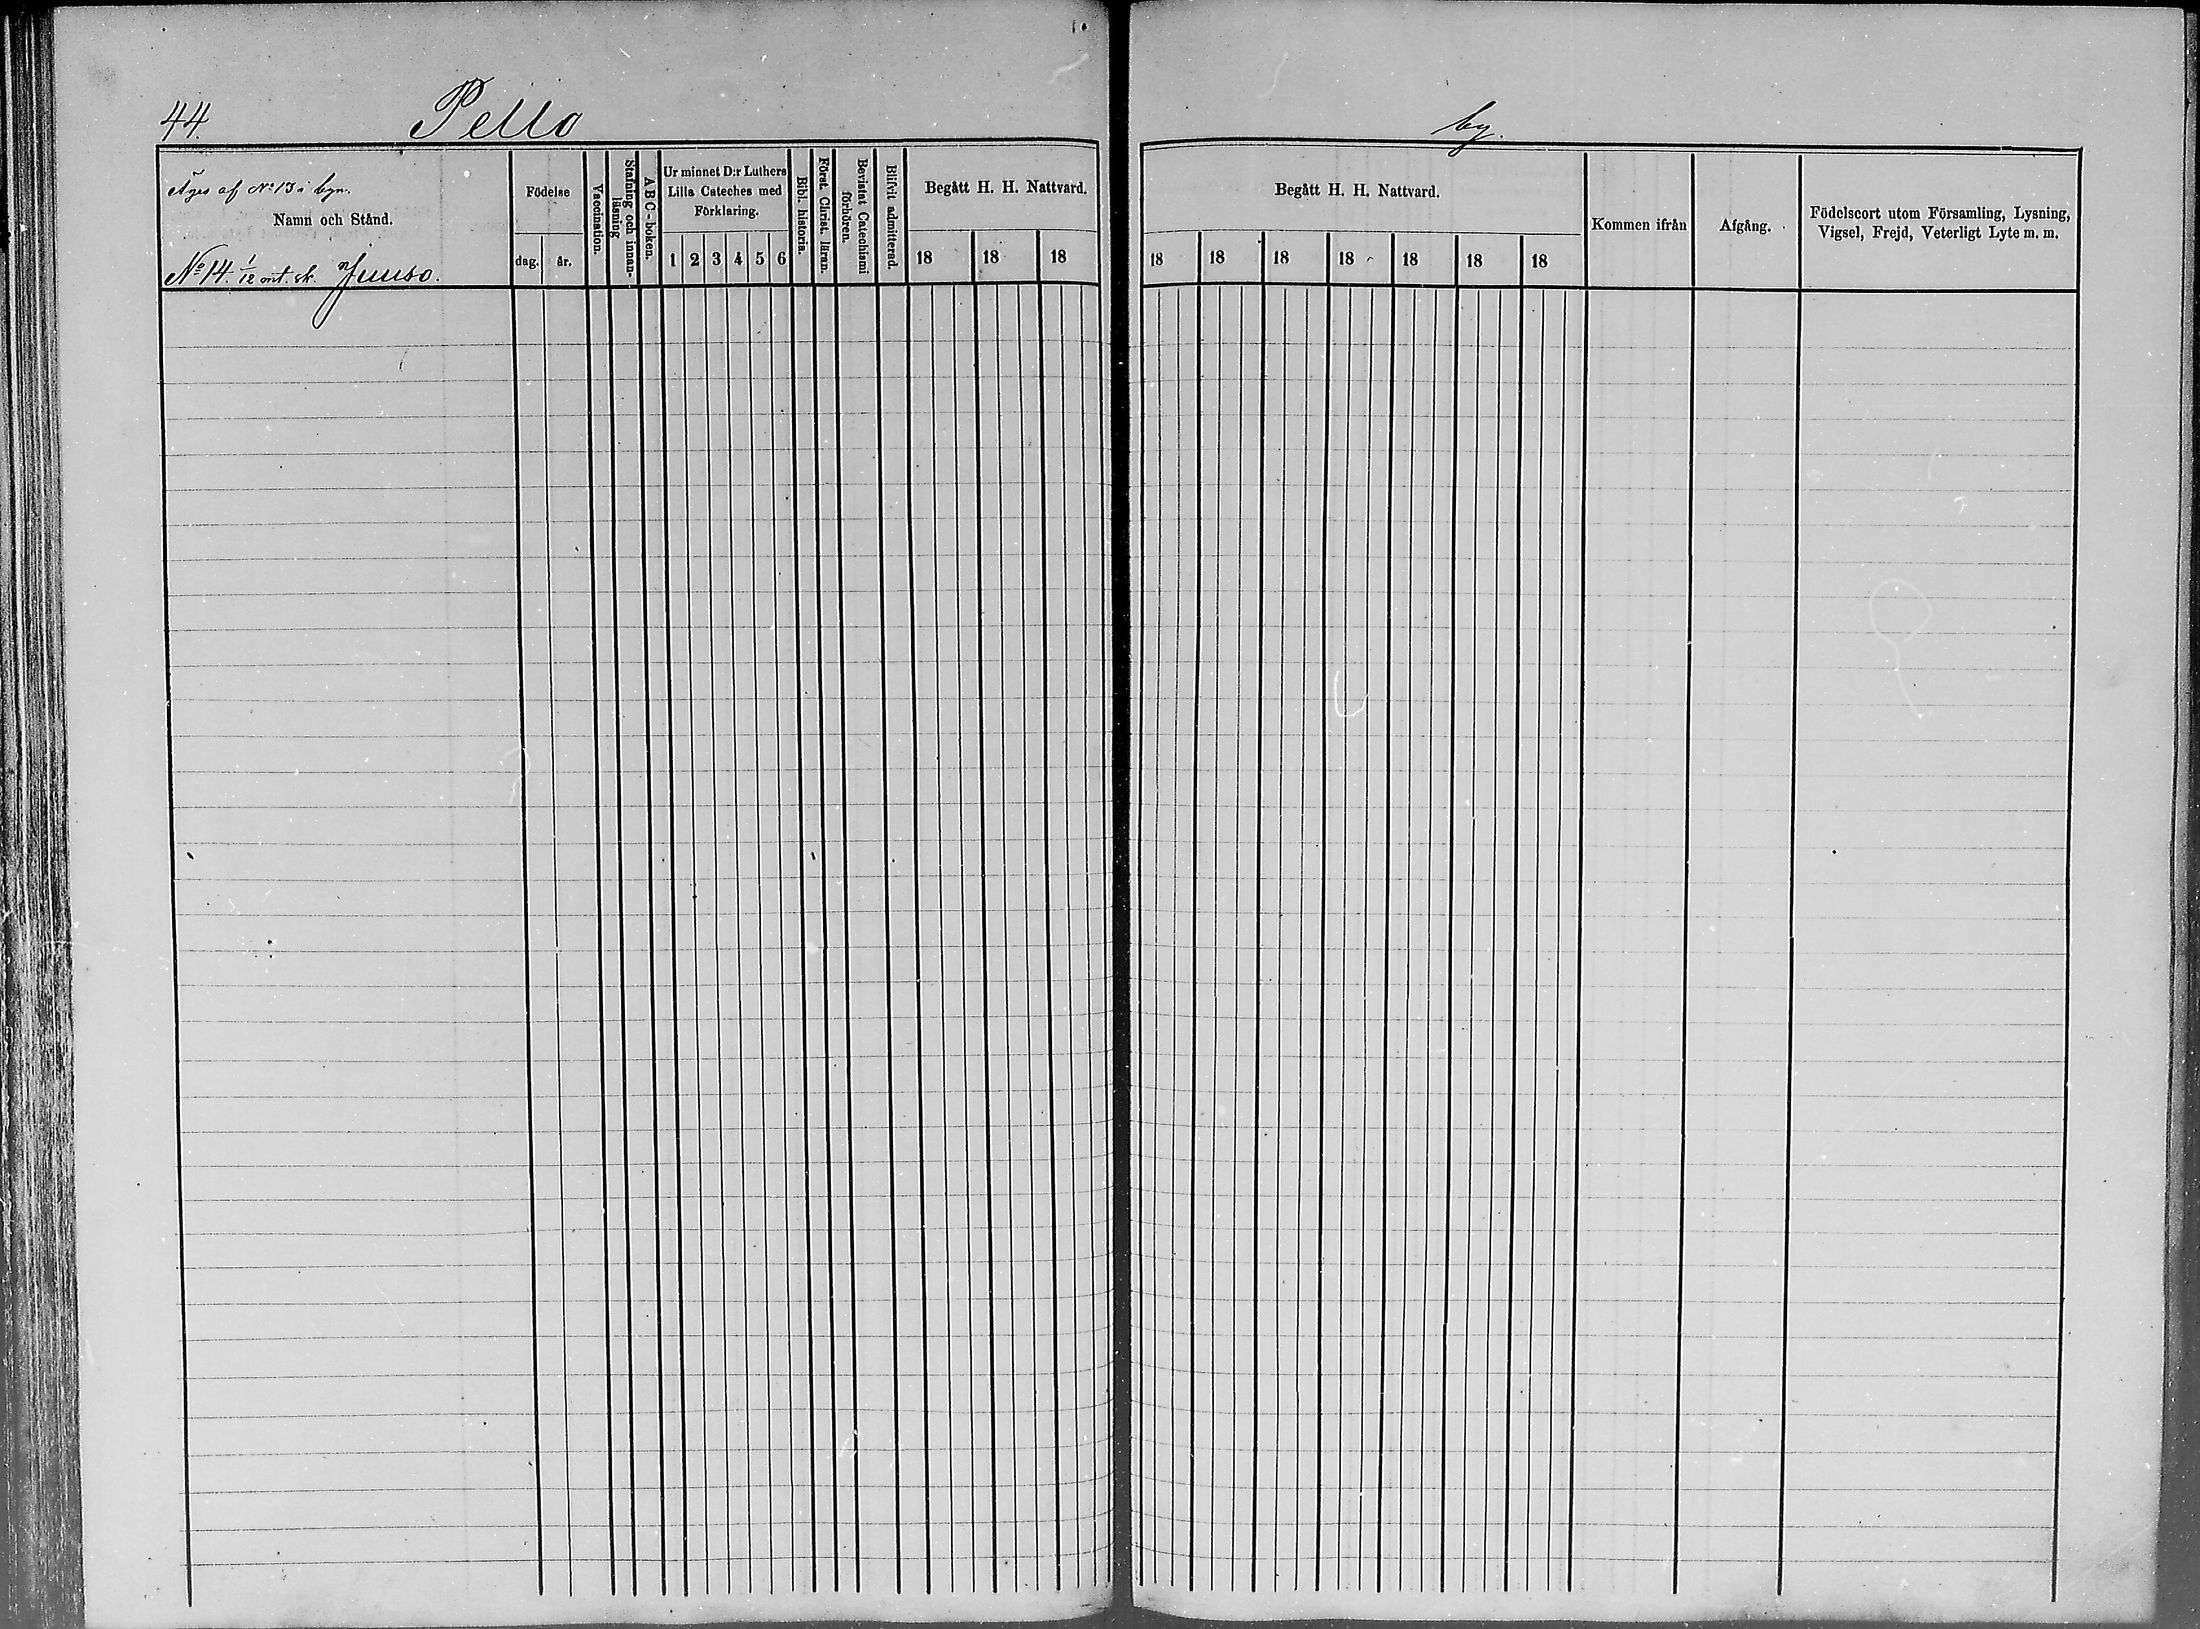 44. Pello by.
Äges af No 13 i byn.
Namn och Stånd.
No 14. 1/12 mt. sk. Juuso.
Födelse
dag. år.
Vaccination.
Stafning och innan-
läsning
ABC-boken.
Ur minnet D:r Luthers
Lilla Cateches med
Förklaring.
1 2 3 4 5 6
Bibl. historia.
Först. Christ. läran.
Bevistat Catechismi
förhören.
Blifvit admitterad.
Begått H. H. Nattvard.
18 18 18
Begått H. H. Nattvard.
18 18 18 18 18 18 18
Kommen ifrån
Afgång.
Födelseort utom Församling, Lysning,
Vigsel, Frejd, Veterligt Lyte m. m.